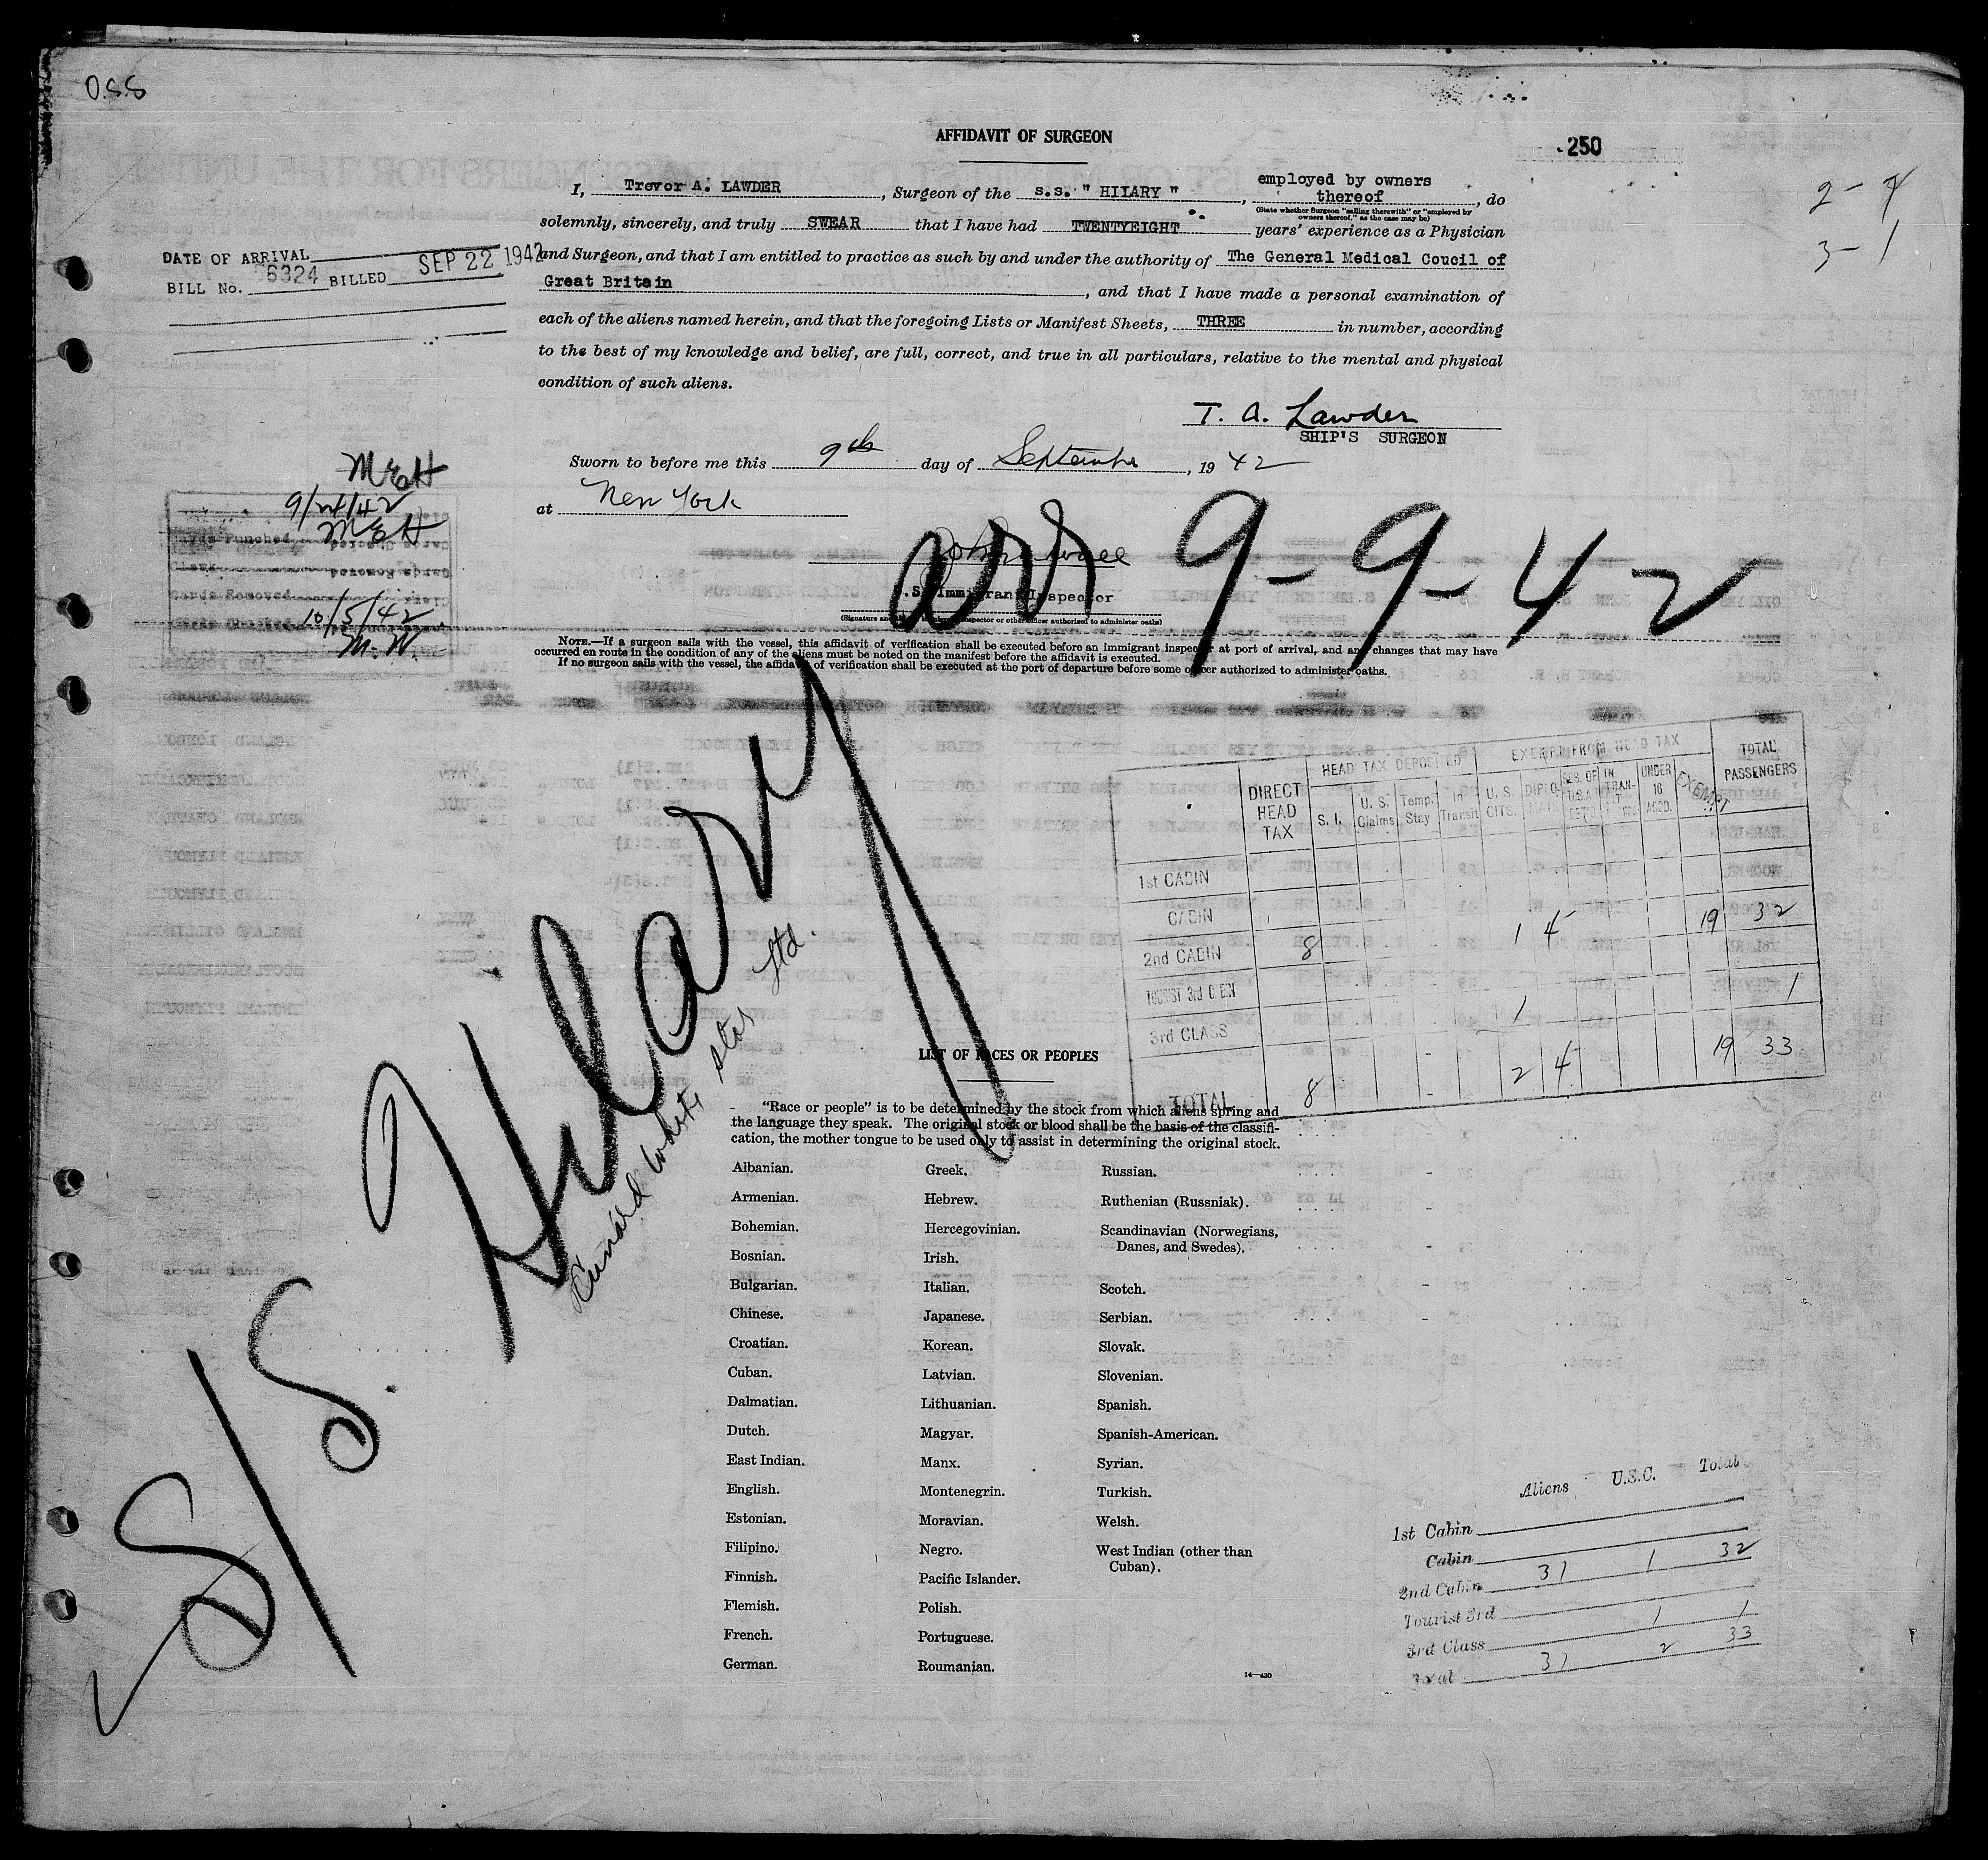 O.S.S
AFFIDAVIT OF SURGEON
250
2 - 4
3 - 1
I, Trevor A. LAWDER, Surgeon of the s.s. " HILARY ", employed by owners thereof, do
(State whether Surgeon "sailing therewith" or "employed by owners thereof," as the case may be)
solemnly, sincerely, and truly SWEAR that I have had TWENTYEIGHT years' experience as a Physician
and Surgeon, and that I am entitled to practice as such by and under the authority of The General Medical Coucil of
Great Britain, and that I have made a personal examination of
each of the aliens named herein, and that the foregoing Lists or Manifest Sheets, THREE in number, according
to the best of my knowledge and belief, are full, correct, and true in all particulars, relative to the mental and physical
condition of such aliens.
DATE OF ARRIVAL
BILL No. 6324 BILLED SEP 22 1942
T. A. Lawder
SHIP'S SURGEON
Sworn to before me this 9th day of September, 1942
at New York
arr 9-9-42
Immigrant Inspector
MEH
9/24/42
MEH
Punched
Cards Removed
10/5/42
M.W.
NOTE.—If a surgeon sails with the vessel, this affidavit of verification shall be executed before an immigrant inspector at port of arrival, and any changes that may have
occurred en route in the condition of any of the aliens must be noted on the manifest before the affidavit is executed.
If no surgeon sails with the vessel, the affidavit of verification shall be executed at the port of departure before some officer authorized to administer oaths.
S/S. Hilary
Cunard White Star Ltd.
DIRECT HEAD TAX
HEAD TAX DEPOSITED
EXEMPT FROM HEAD TAX
TOTAL PASSENGERS
S. I. U. S. Claims Temp. Stay In Transit U. S. CITS. UNDER 16 ACCO. EXEMPT
1st CABIN
CABIN
2nd CABIN 8 1 4 19 32
TOURIST 3rd
3rd CLASS 1 1
TOTAL 8 2 4 19 33
LIST OF RACES OR PEOPLES
"Race or people" is to be determined by the stock from which aliens spring and
the language they speak. The original stock or blood shall be the basis of the classifi-
cation, the mother tongue to be used only to assist in determining the original stock.
Albanian.
Armenian.
Bohemian.
Bosnian.
Bulgarian.
Chinese.
Croatian.
Cuban.
Dalmatian.
Dutch.
East Indian.
English.
Estonian.
Filipino.
Finnish.
Flemish.
French.
German.
Greek.
Hebrew.
Hercegovinian.
Irish.
Italian.
Japanese.
Korean.
Latvian.
Lithuanian.
Magyar.
Manx.
Montenegrin.
Moravian.
Negro.
Pacific Islander.
Polish.
Portuguese.
Roumanian.
Russian.
Ruthenian (Russniak).
Scandinavian (Norwegians,
Danes, and Swedes).
Scotch.
Serbian.
Slovak.
Slovenian.
Spanish.
Spanish-American.
Syrian.
Turkish.
Welsh.
West Indian (other than
Cuban).
14—430
Aliens U.S.C. Total
1st Cabin
Cabin
2nd Cabin 31 1 32
Tourist 3rd
3rd Class 1 1
Total 31 2 33